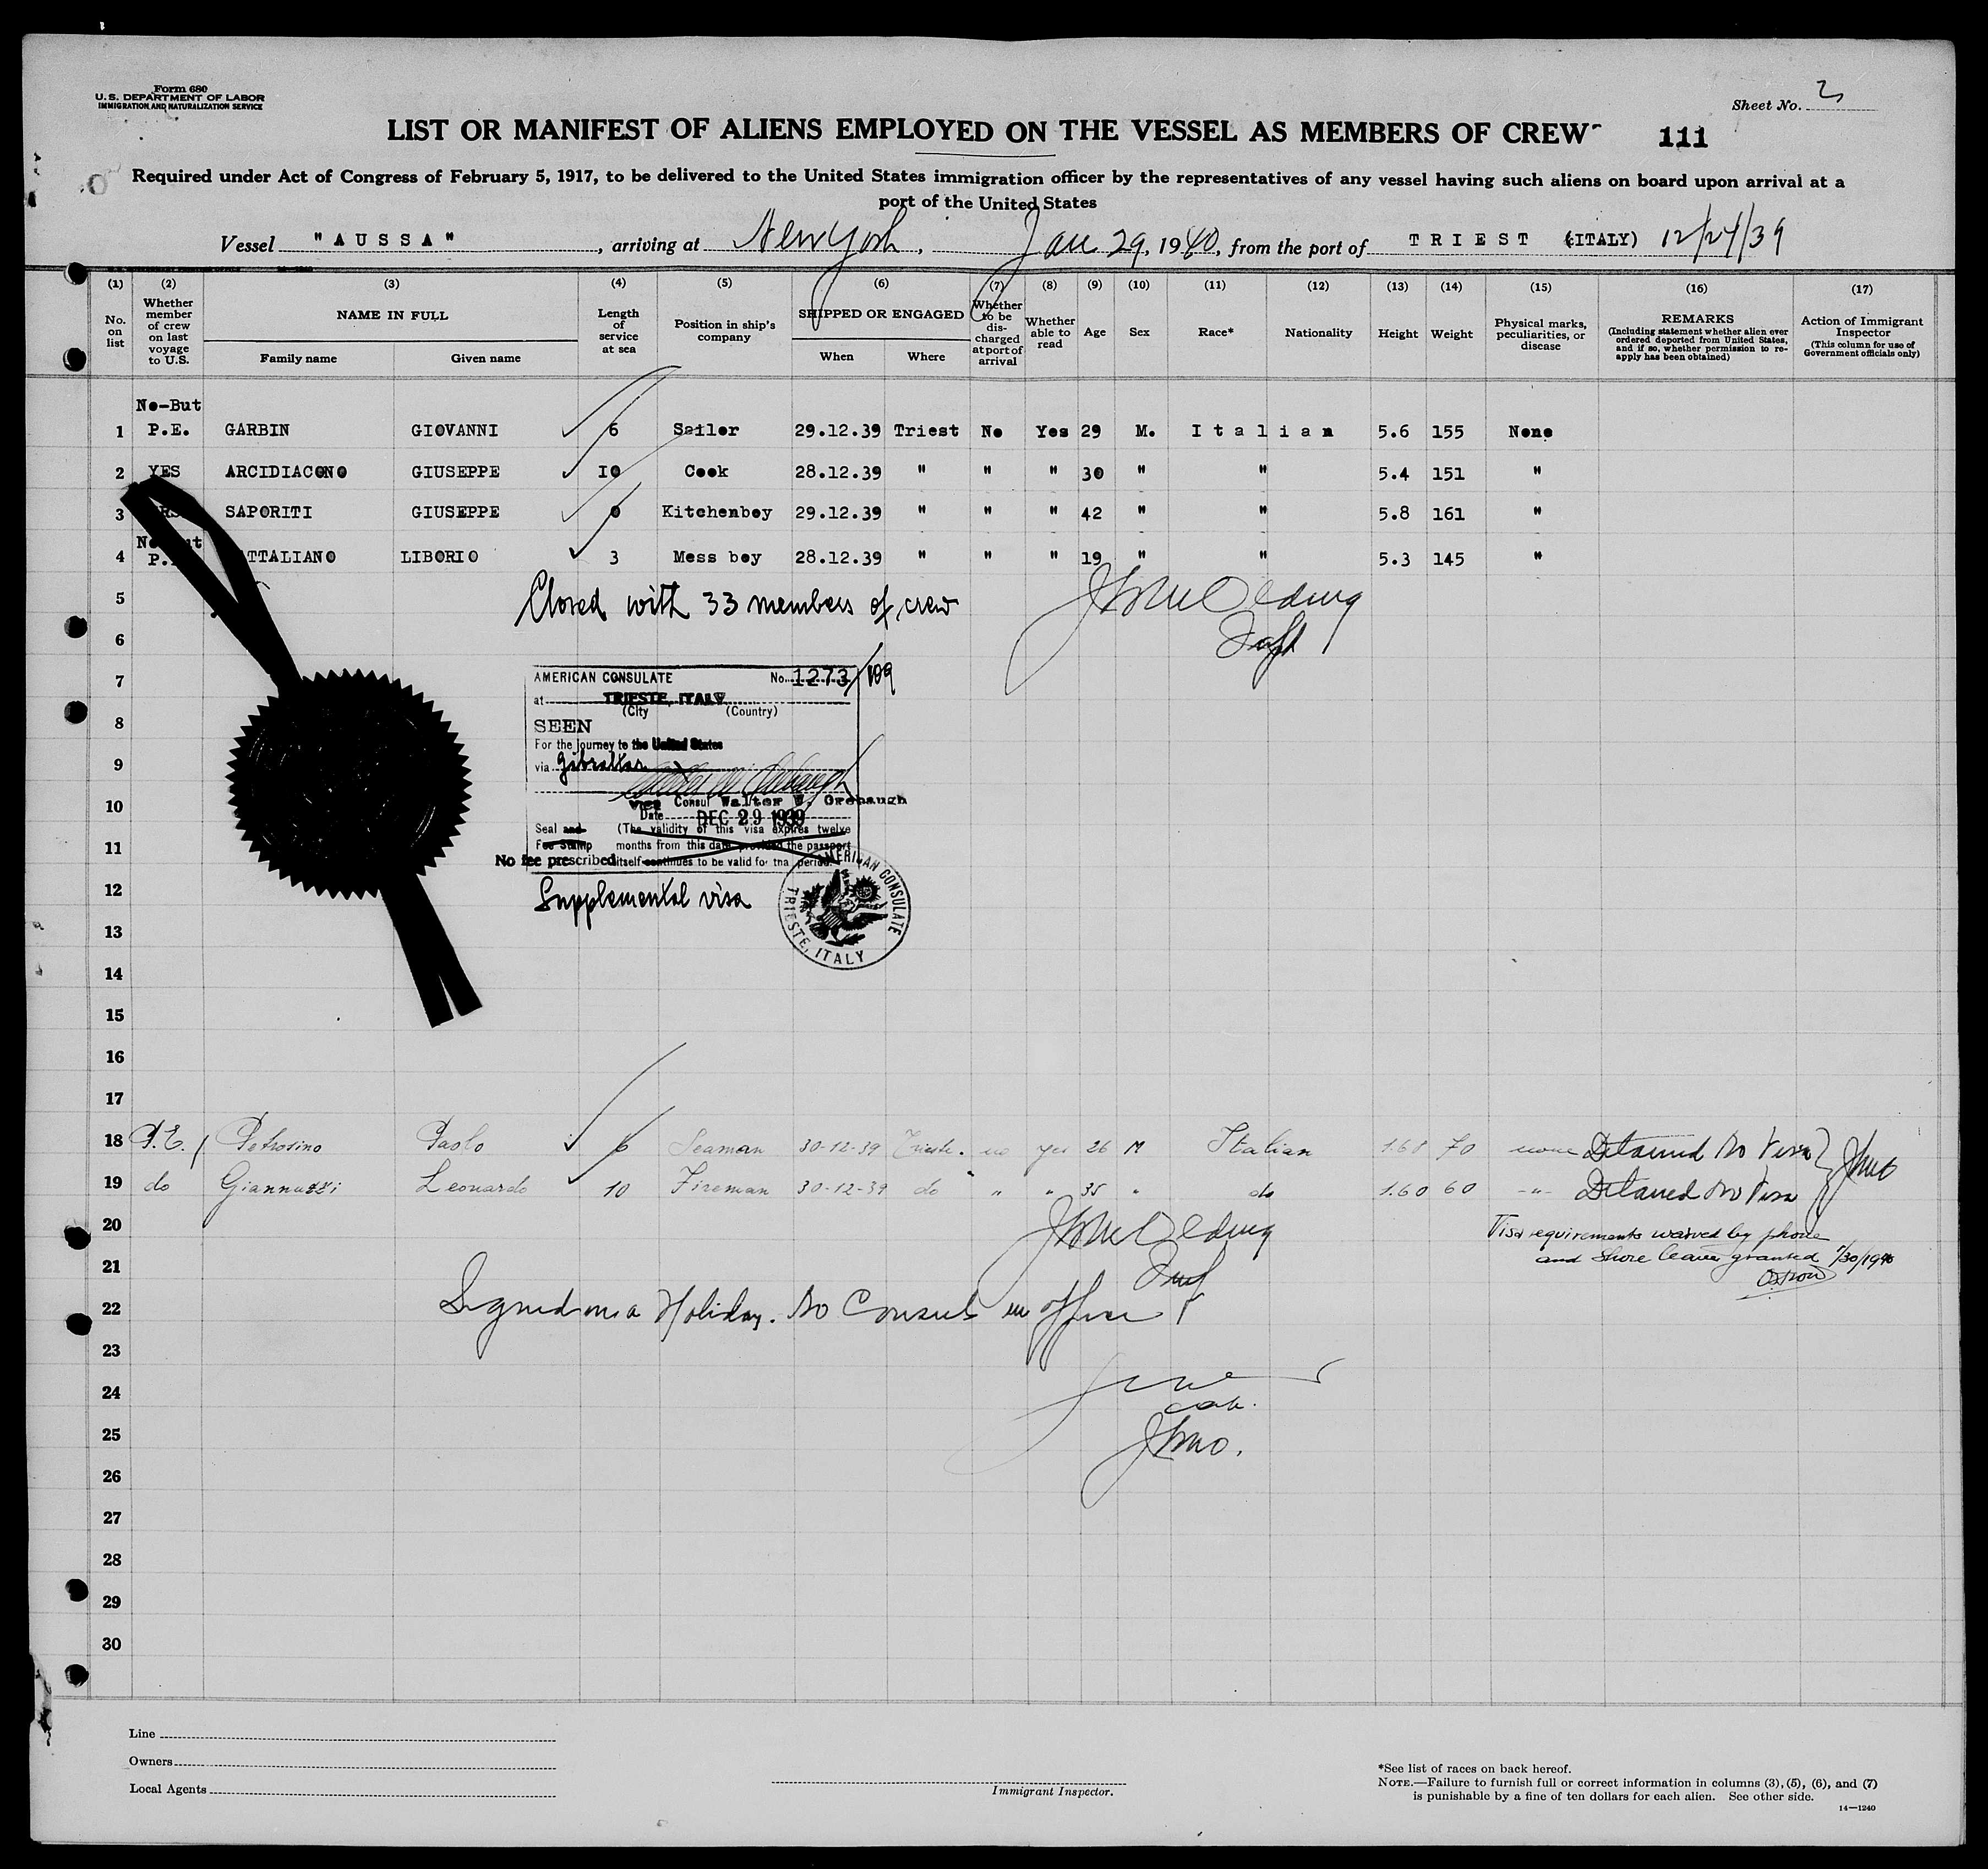 Form 680
U.S. DEPARTMENT OF LABOR
IMMIGRATION AND NATURALIZATION SERVICE
Sheet No. 2
LIST OR MANIFEST OF ALIENS EMPLOYED ON THE VESSEL AS MEMBERS OF CREW 111
Required under Act of Congress of February 5, 1917, to be delivered to the United States immigration officer by the representatives of any vessel having such aliens on board upon arrival at a
port of the United States
Vessel "AUSSA", arriving at New York, Jan 29, 1940, from the port of TRIEST (ITALY) 12/24/39
(1) No. on list
(2) Whether member of crew on last voyage to U.S.
(3) NAME IN FULL Family name Given name
(4) Length of service at sea
(5) Position in ship's company
(6) SHIPPED OR ENGAGED When Where
(7) Whether to be discharged at port of arrival
(8) Whether able to read
(9) Age
(10) Sex
(11) Race*
(12) Nationality
(13) Height
(14) Weight
(15) Physical marks, peculiarities, or disease
(16) REMARKS (Including statement whether alien ever ordered deported from United States, and if so, whether permission to re-apply has been obtained)
(17) Action of Immigrant Inspector (This column for use of Government officials only)
No-But
1 P.E. GARBIN GIOVANNI 6 Sailor 29.12.39 Triest No Yes 29 M. Italian 5.6 155 None
2 YES ARCIDIACONO GIUSEPPE 10 Cook 28.12.39 " " " 30 " " 5.4 151 "
3 SAPORITI GIUSEPPE 0 Kitchenboy 29.12.39 " " " 42 " " 5.8 161 "
4 TTALIANO LIBORIO 3 Mess boy 28.12.39 " " " 19 " " 5.3 145 "
5 Closed with 33 members of crew
6
7
AMERICAN CONSULATE No. 1273/109
at TRIESTE, ITALY
(City (Country)
8
SEEN
For the journey to the United States
9
via Gibraltar
10
Vice Consul Walter W. Orebaugh
Date DEC 29 1939
Seal and (The validity of this visa expires twelve
11
Fee Stamp months from this date provided the passport
No fee prescribed itself continues to be valid for the period.
12 Supplemental visa
AMERICAN CONSULATE TRIESTE, ITALY
13
14
15
16
17
18 P.E. Petrosino Paolo 6 Seaman 30-12-39 Trieste. no yes 26 M Italian 1.68 70 none Detained No Visa
19 do Giannuzzi Leonardo 10 Fireman 30-12-39 do " " 35 " do 1.60 60 -"- Detained No Visa
20 Visa requirements waived by phone
21 and Shore leave granted 1/30/1940
22 Signed on a Holiday. No Consul in office
23
24
25
26
27
28
29
30
Line
Owners
Local Agents
Immigrant Inspector.
*See list of races on back hereof.
NOTE.—Failure to furnish full or correct information in columns (3), (5), (6), and (7)
is punishable by a fine of ten dollars for each alien. See other side.
14—1240